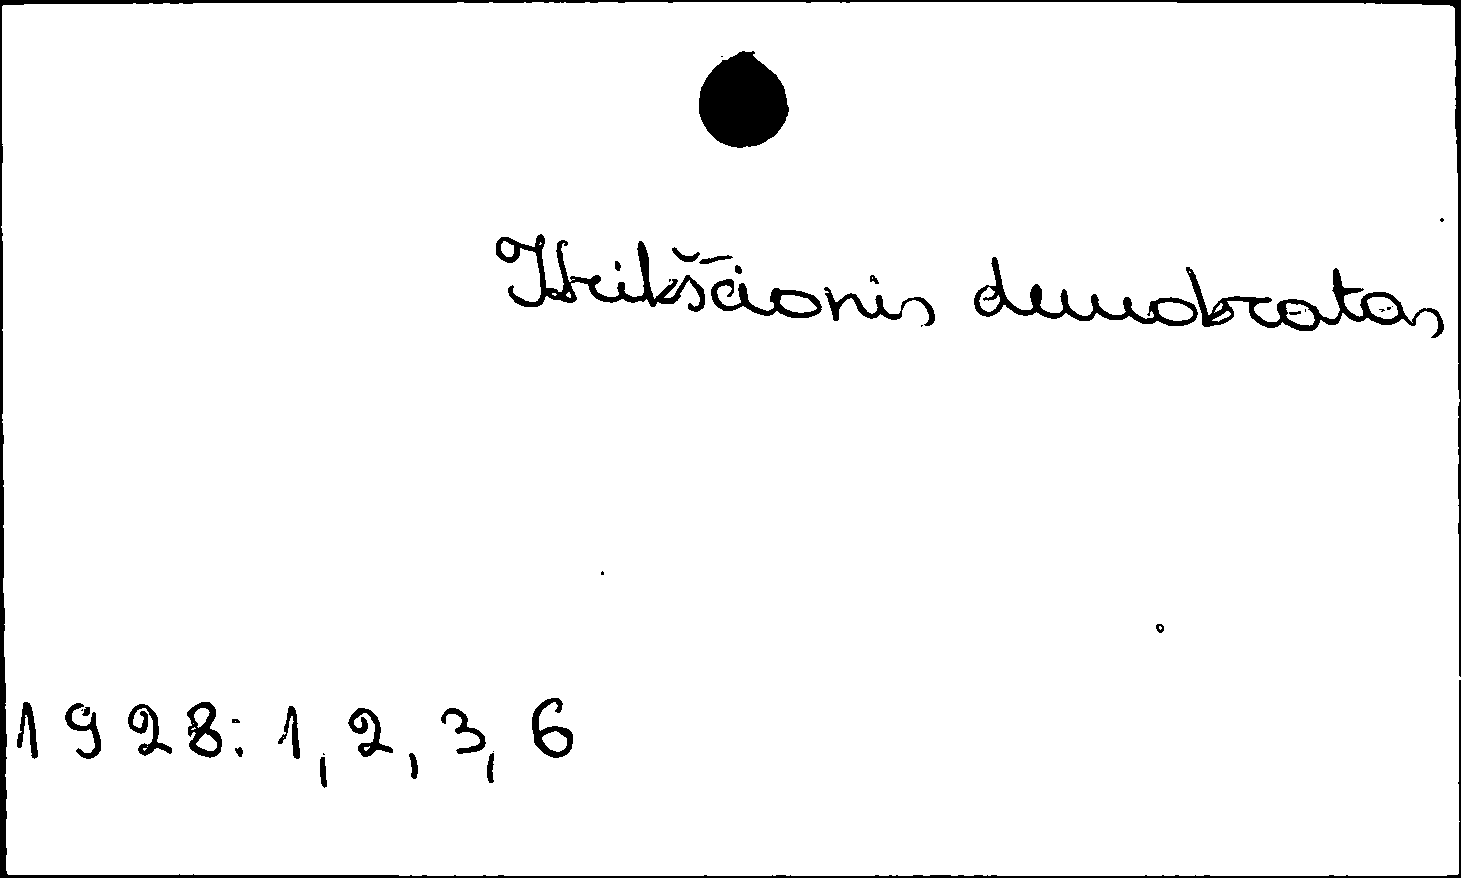 Krikščionis demokratas
1928: 1, 2, 3, 6